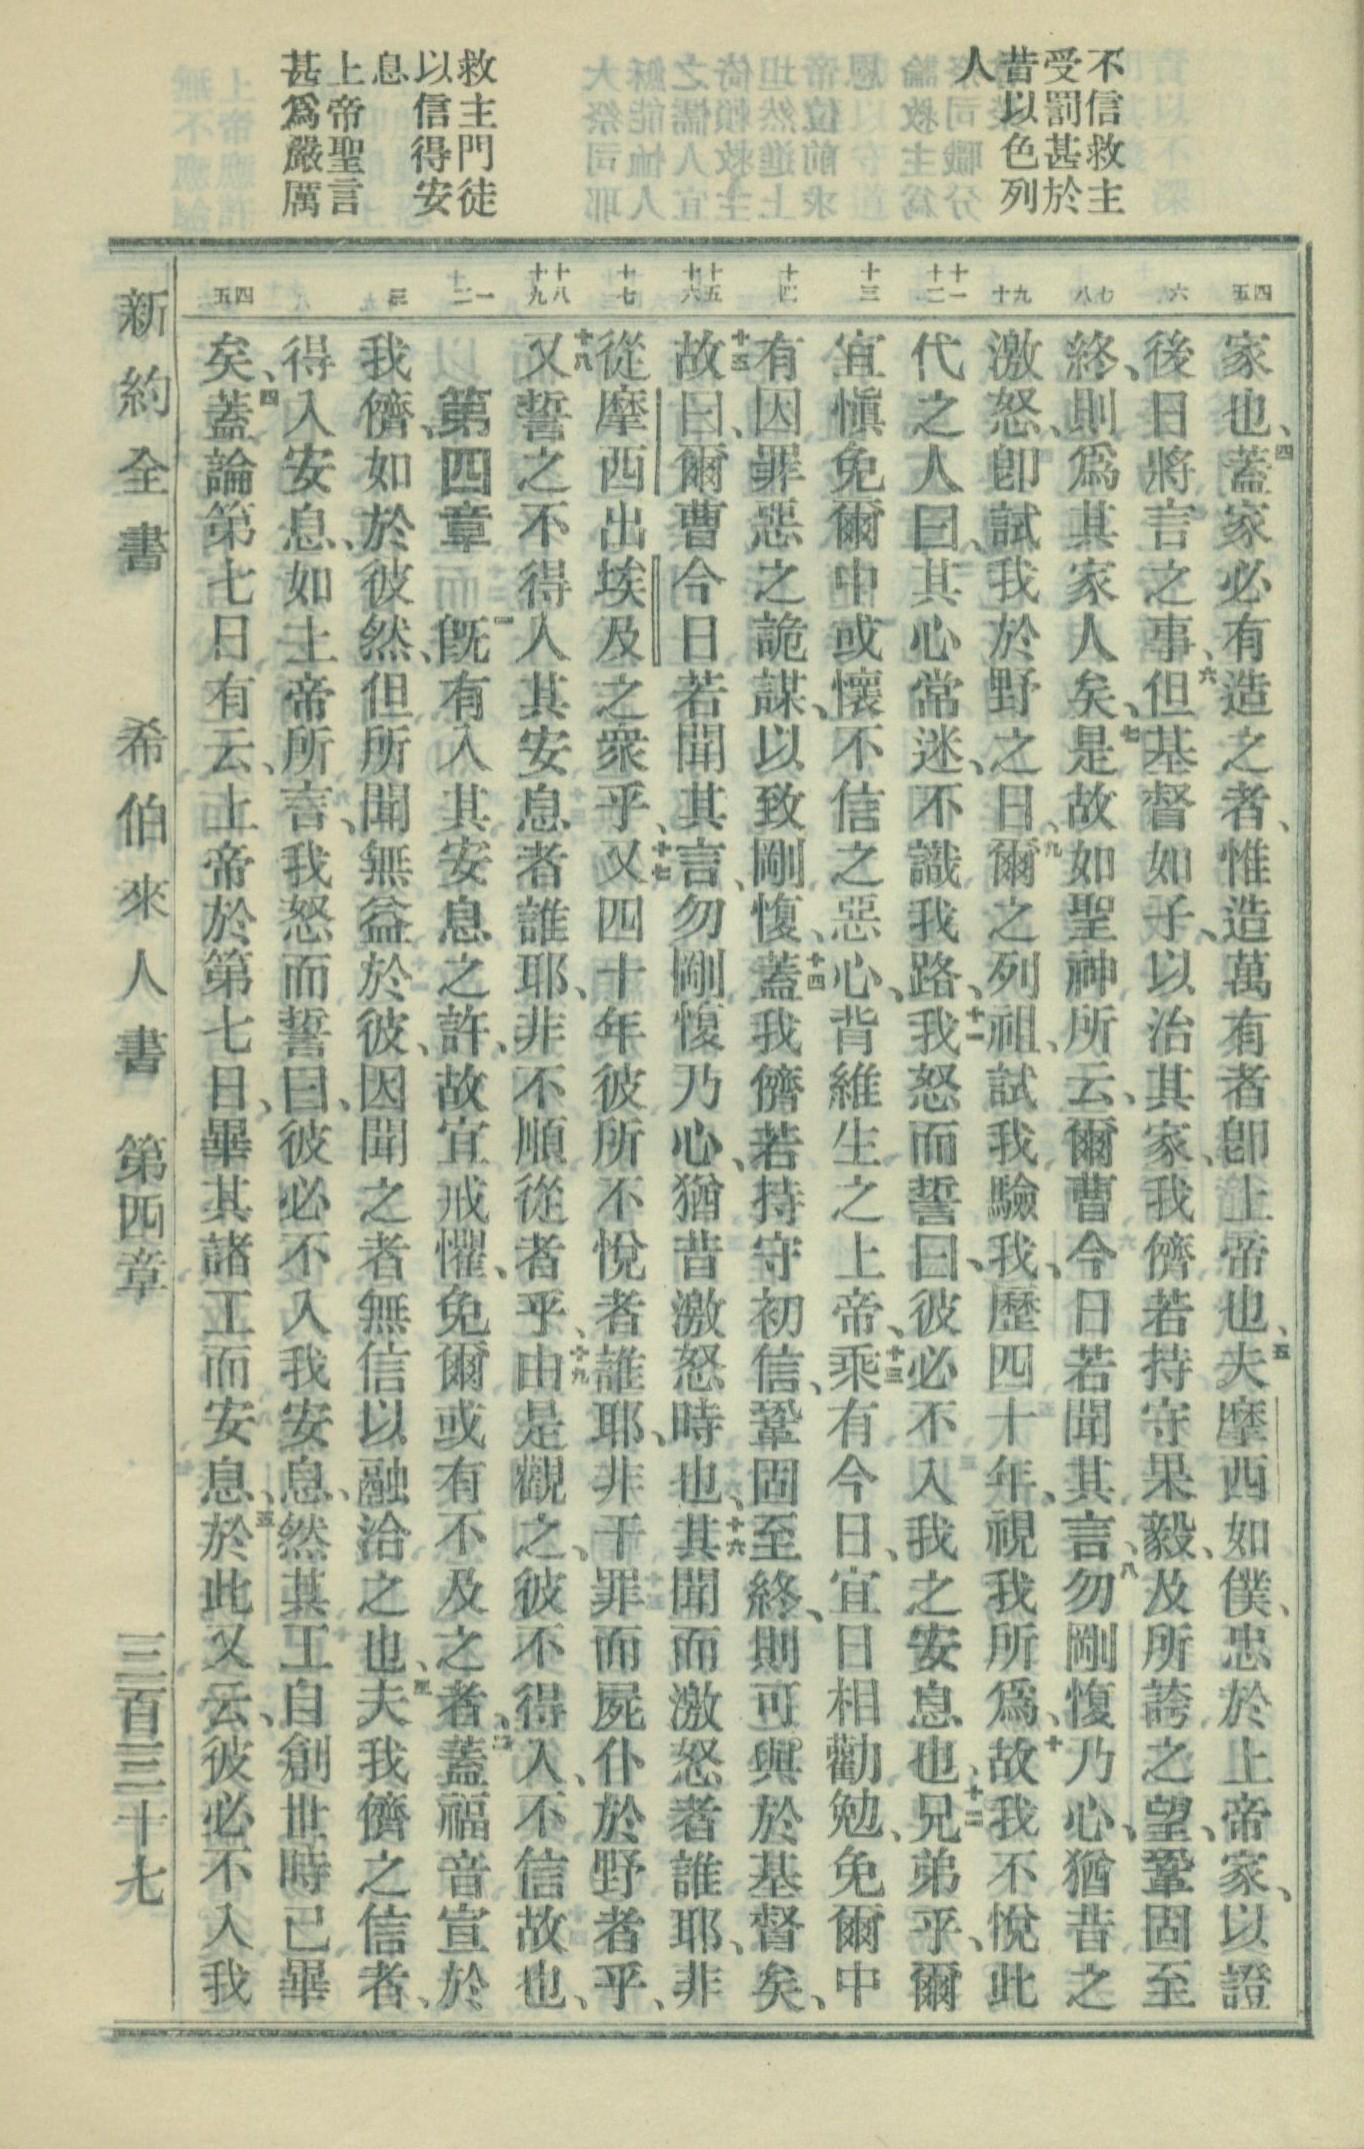 不信救主
受罰甚於
昔以色列
人
救主門徒
以信得安
息
上帝聖言
甚爲嚴厲
四五
六
七八
九十
十一十二
十三
十四
十五十六
十七
十八十九
一二
三
四五
家也、四蓋家必有造之者、惟造萬有者卽上帝也、五夫摩西如僕、忠於上帝家、以證
後日將言之事、六但基督如子、以治其家、我儕若持守果毅、及所誇之望、鞏固至
終、則爲其家人矣、七是故如聖神所云、爾曹今日若聞其言、八勿剛愎乃心、猶昔之
激怒、卽試我於野之日、九爾之列祖、試我驗我、歷四十年、視我所爲、十故我不悅此
代之人曰、其心常迷、不識我路、十一我怒而誓曰、彼必不入我之安息也、十二兄弟乎、爾
宜愼免爾中或懷不信之惡心、背維生之上帝、十三乘有今日、宜日相勸勉、免爾中
有因罪惡之詭謀、以致剛愎、十四蓋我儕若持守初信、鞏固至終、則可與於基督矣、
十五故曰、爾曹今日若聞其言、勿剛愎乃心、猶昔激怒時也、十六其聞而激怒者誰耶、非
從摩西出埃及之衆乎、十七又四十年彼所不悅者誰耶、非干罪而屍仆於野者乎、
十八又誓之不得入其安息者誰耶、非不順從者乎、十九由是觀之、彼不得入、不信故也、
第四章 一旣有入其安息之許、故宜戒懼、免爾或有不及之者、二蓋福音宣於
我儕、如於彼然、但所聞無益於彼、因聞之者無信以融洽之也、三夫我儕之信者、
得入安息、如上帝所言、我怒而誓曰、彼必不入我安息、然其工自創世時已畢
矣、四蓋論第七日有云、上帝於第七日、畢其諸工而安息、五於此又云、彼必不入我
新約全書 希伯來人書 第四章 三百三十七